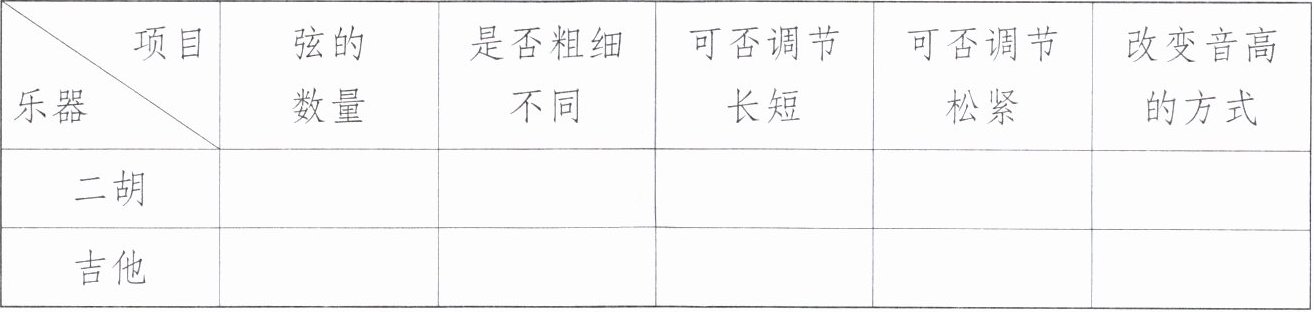 项目
乐器
弦的
数量
是否粗细
不同
可否调节
长短
可否调节
松紧
改变音高
的方式
二胡
吉他